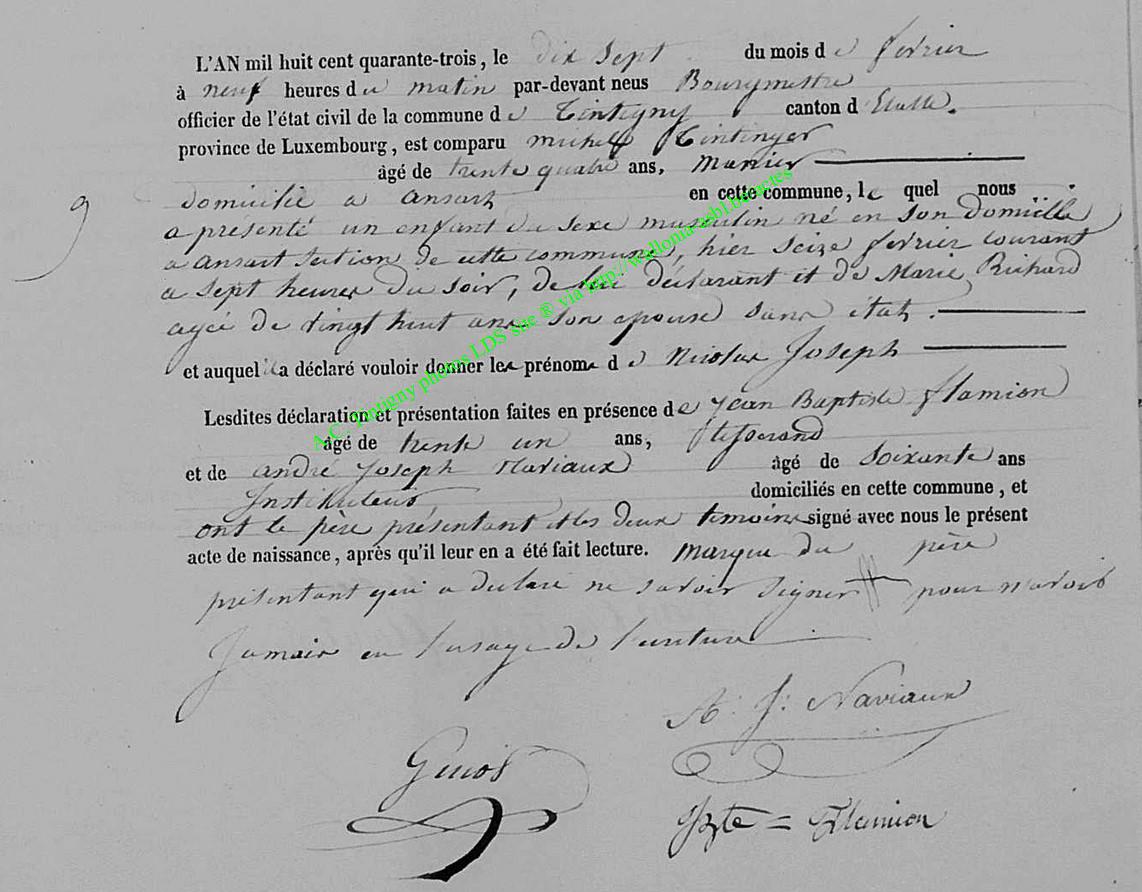 L'AN mil huit cent quarante-trois, le dix sept du mois de fevrier
à neuf heures du matin par-devant nous Bourgmestre
officier de l'état civil de la commune de Tintigny canton d'Etalle.
province de Luxembourg, est comparu michel Tintinger
âgé de trente quatre ans, manier
domicilié a ansart en cette commune, le quel nous
a présenté un enfant du sexe musculin né en son domicille
a ansart section de cette commune, hier seize fevrier courant
a sept heures du soir, de lui déclarant et de Marie Richard
agée de vingt huit ans son epouse sans état.
et auquel il a déclaré vouloir donner les prénoms de Nicolas Joseph
Lesdites déclaration et présentation faites en présence de Jean Baptiste flamion
âgé de trente un ans, tisserand
et de andré Joseph Naviaux âgé de soixante ans
Instituteur, domiciliés en cette commune, et
ont le père présentant et les deux temoins signé avec nous le présent
acte de naissance, après qu'il leur en a été fait lecture. marque du père
présentant qui a declaré ne savoir signer pour n'avoir
Jamais eu l'usage de l'ecriture
A. J: Naviaux
Guiot
JBte = Flamion
9
A.C. Tintigny photos LDS site ® via http://wallonia-asbl.be/actes